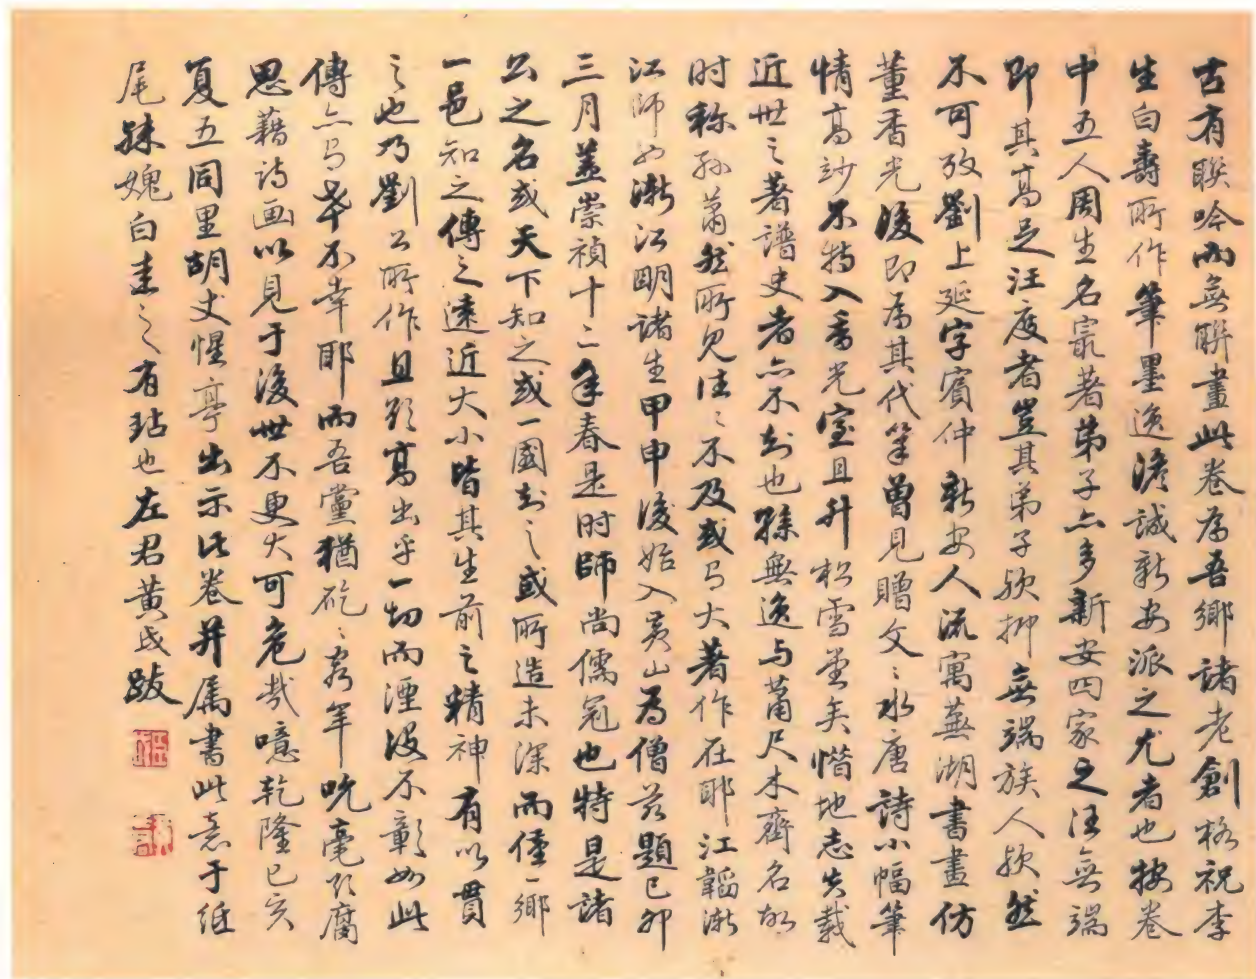 古有聯吟而無聯畫此卷為吾鄉諸老創格祝李
生白壽所作筆墨逸澹誠新安派之尤者也按卷
中五人周生名宗著弟子亦多新安四家之汪無端
即其高足汪度者豈其弟子欤抑無端族人欤然
不可攷劉上延字賓仲新安人流寓蕪湖書畫仿
董香光後即為其代筆曾見贈文文水唐詩小幅筆
情高妙不特入香光室且升松雪堂矣惜地志失載
近世之著譜史者亦不知也孫無逸与蕭尺木齊名故
时称孫蕭然所見往往不及或另大著作在耶江韜漸
江師如漸江明諸生甲申後始入黃山為僧茲題己卯
三月蓋崇禎十二年春是时師尚儒冠也特是諸
公之名或天下知之或一國知之或所造未深而僅一鄉
一邑知之傳之遠近大小皆其生前之精神有以貫
之也乃劉公所作且欲寫出乎一切而湮没不彰如此
傳亦有幸不幸耶而吾黨猶矻矻窮年吮毫欲腐
思藉詩画以見于後世不更大可危哉噫乾隆己亥
夏五同里胡丈惺亭出示此卷并属書此意于紙
尾殊愧白圭之有玷也左君黃戉跋